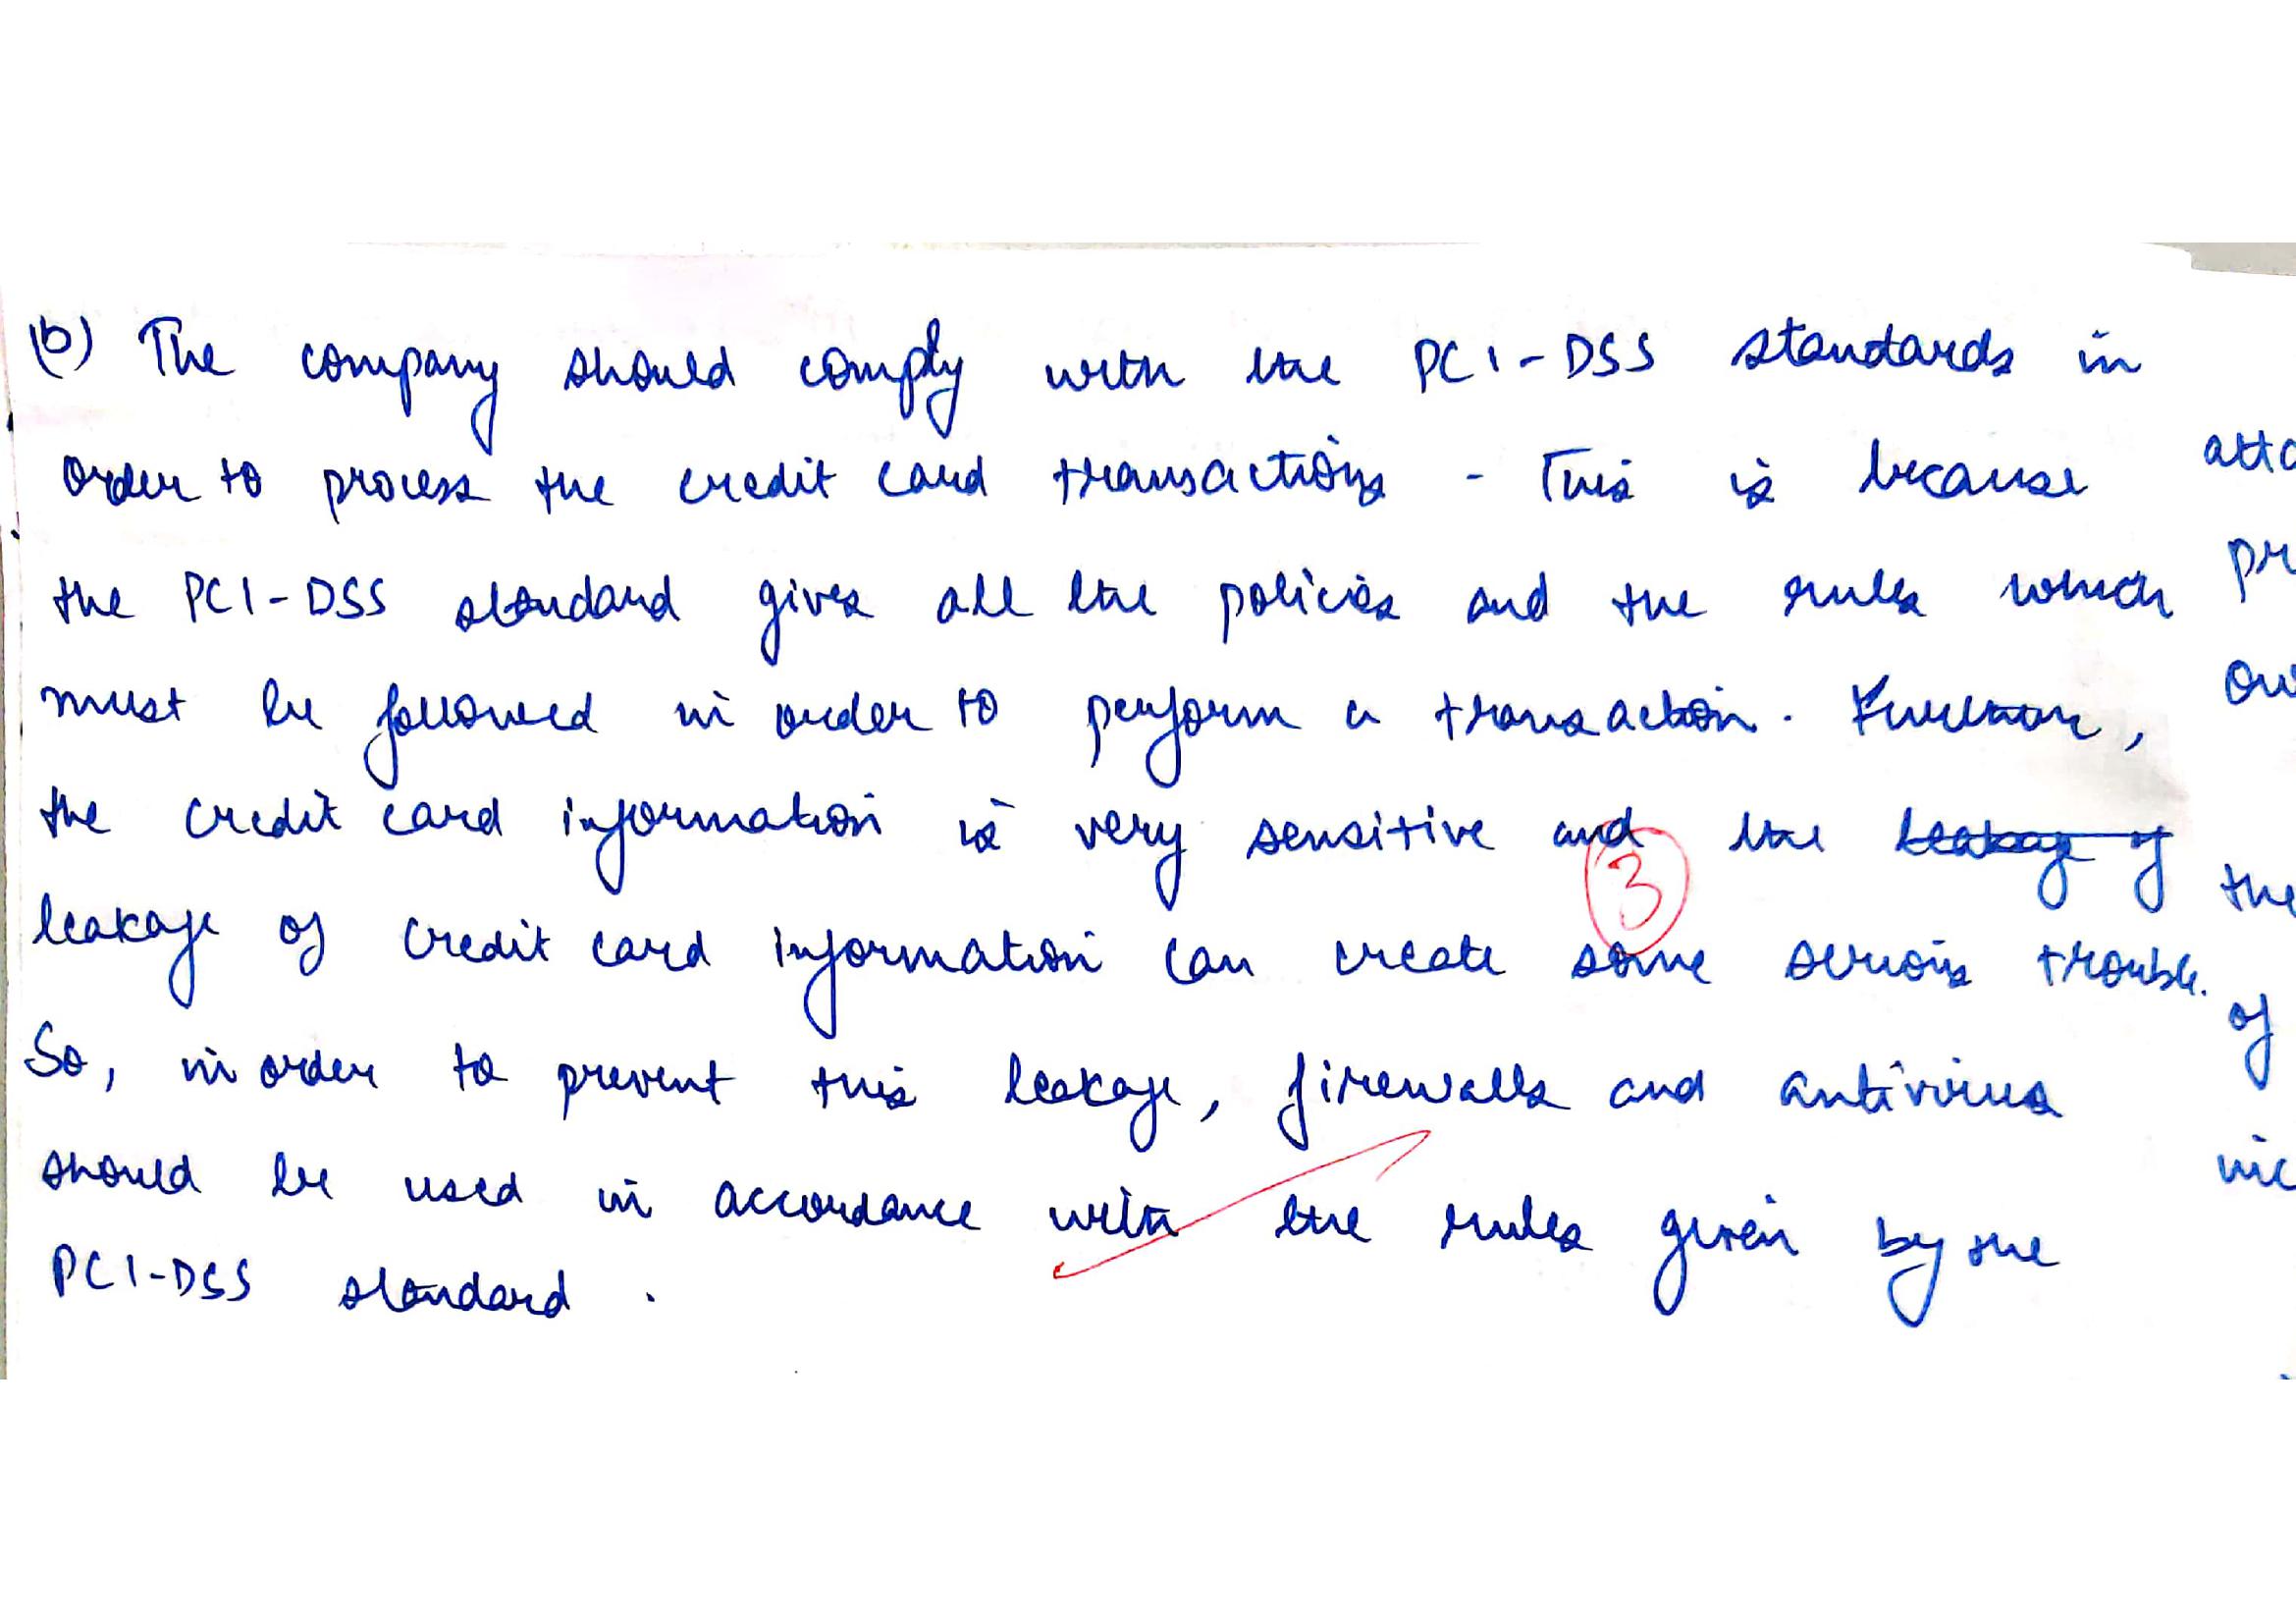 (b) The company should comply with the PCI-DSS standards in
order to process the credit card transactions. This is because
the PCI-DSS standard gives all the policies and the rules which
must be followed in order to perform a transaction. Further,
the credit card information is very sensitive and the leakage of
leakage of credit card information can create some serious trouble.
So, in order to prevent this leakage, firewalls and antivirus
should be used in accordance with the rules given by the
PCI-DSS standard.
3
atta
pr
the
of